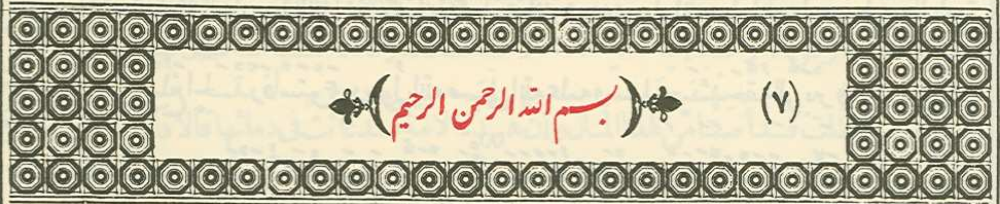 (٧) (بسم الله الرحمن الرحيم)